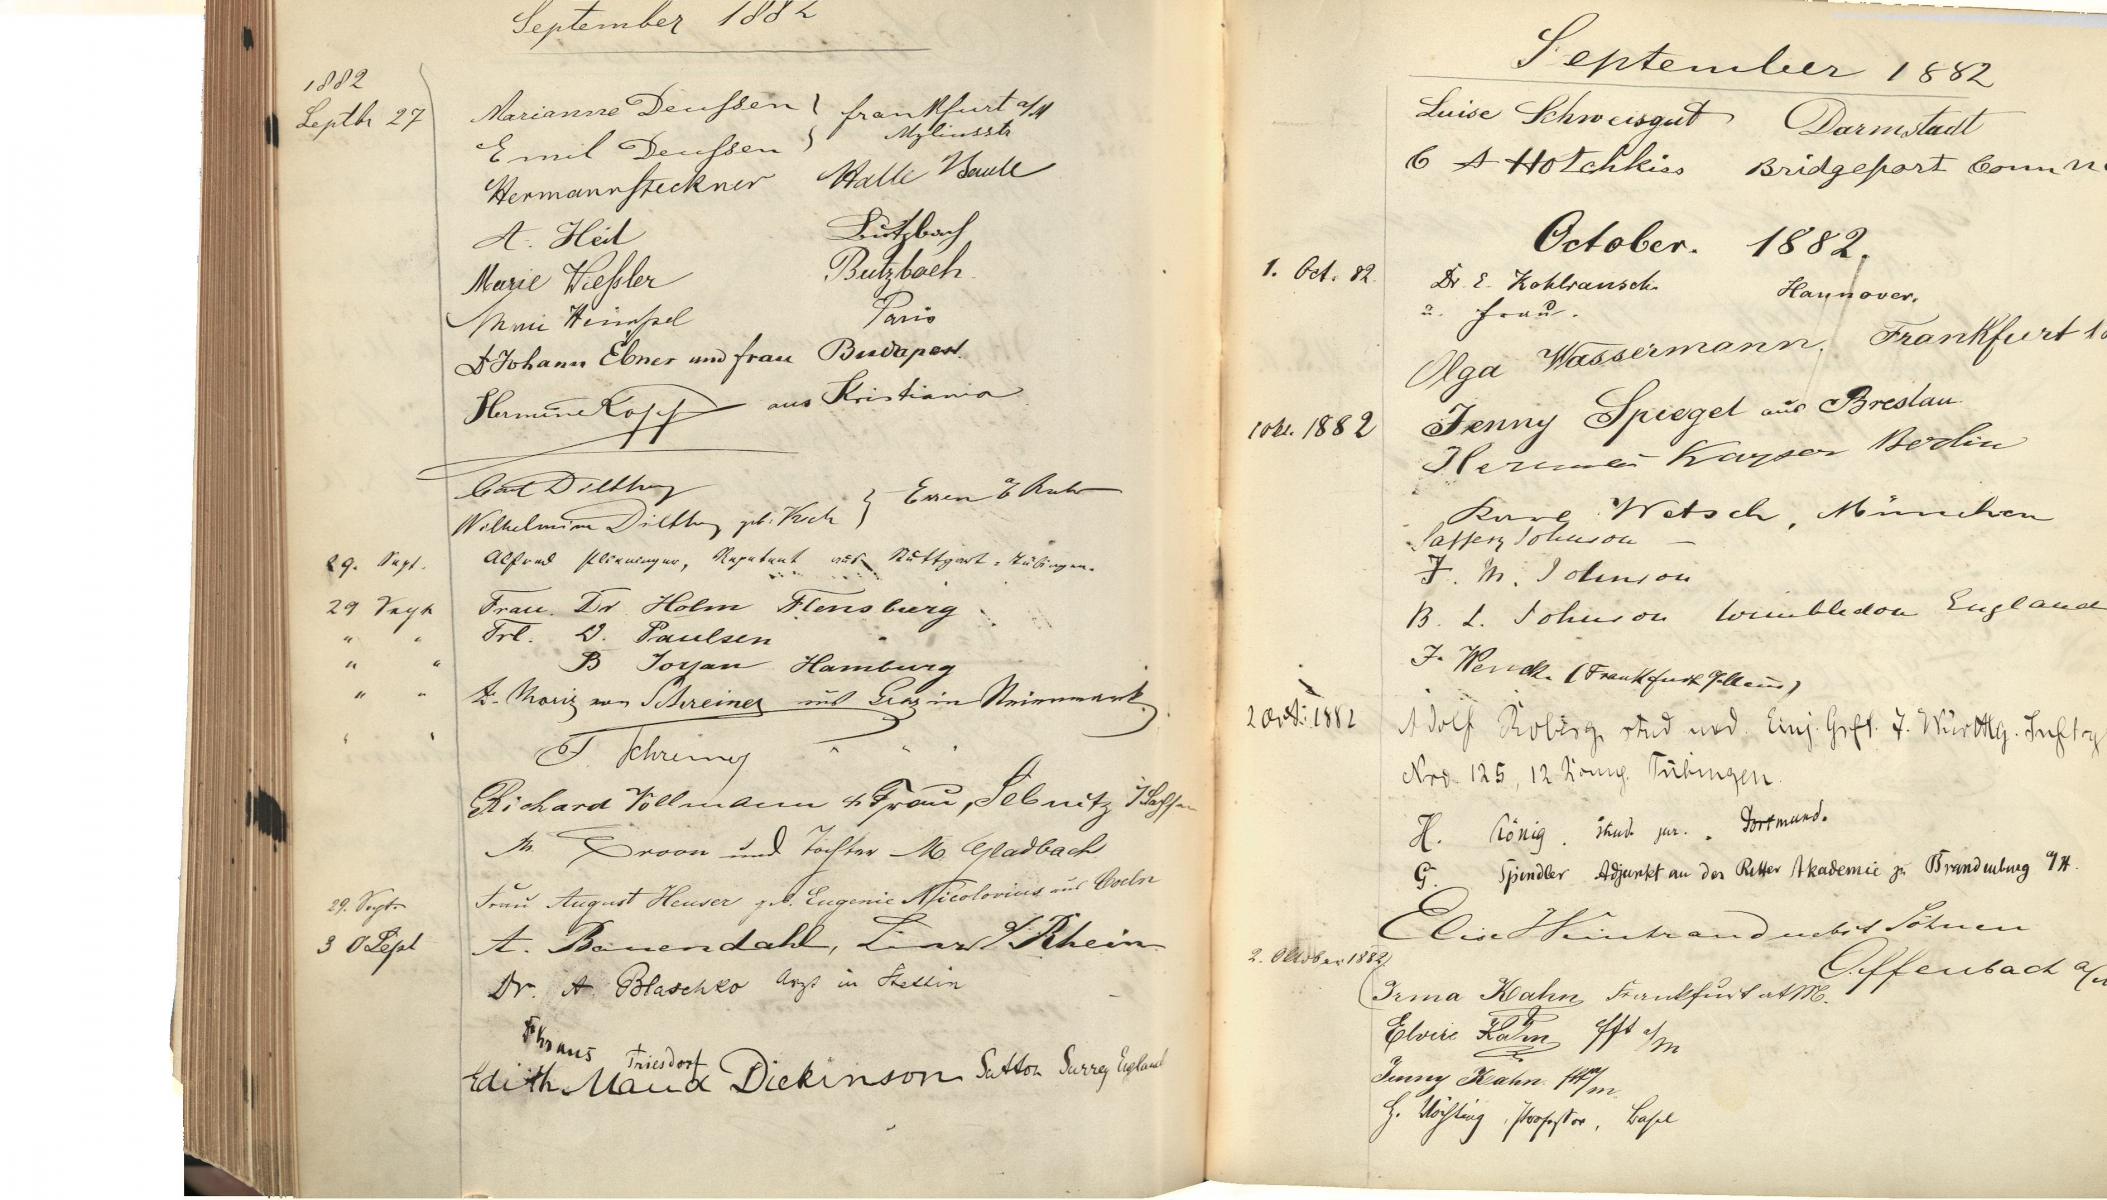 September 1882
1882
Septbr 27 Marianne Deußen } Frankfurt a/M
Emil Deußen } Myliusstr
Hermann Steckner Halle Saale
A. Heil Butzbach
Marie Wießler Butzbach
Paris
Dr Johann Ebner und Frau Budapest.
Hermine Kopf aus Kristiania
Carl Dilthey } Essen a Ruhr
Wilhelmine Dilthey geb.
29. Sept. Alfred Repetent aus Stuttgart - Tübingen.
29 Sept Frau Dr Holm Flensburg
" " Frl. D. Paulsen "
" " B Hamburg
" " Dr Moriz von Schreiner aus Graz in Steiermark
" " " " "
Richard Vollmann & Frau, Sebnitz i Sachsen
M. Croon und Tochter M. Gladbach
29. Sept. Frau August Heuser geb. Eugenie Nicolovius aus Coeln
30 Sept A. Bauendahl, Linz a/Rhein
Dr. A. Blaschko Arzt in Stettin
Dr Kraus
Triesdorf
Edith Maud Dickinson Sutton Surrey England
September 1882
Luise Schweisgut Darmstadt
C A Hotchkiss Bridgeport Conn
October. 1882.
1. Oct. 82. Dr. E. Kohlrausch Hannover.
u. Frau.
Olga Wassermann, Frankfurt
1 Okt. 1882 Jenny Spiegel aus Breslau
Kayser Berlin
Wetsch, München
Johnson
F. M. Johnson
B. L. Johnson Wimbledon England
F. Wenck. (Frankfurt
2 Oct. 1882 Adolf stud med. Einj. Grft. 7. Württbg. Inftrg
Nro. 125, 12 Komp. Tübingen.
H. König. stud. jur. Dortmund.
G. Spindler Adjunkt an der Ritter Akademie zu Brandenburg a/H.
Elise Weintraud nebst Söhnen
Offenbach a/M
2. Oktober 1882 Irma Kahn Frankfurt a/M.
Elvire Kahn Fft a/M
Jenny Kahn Fft a/M
H. Vöchting, Professor, Basel